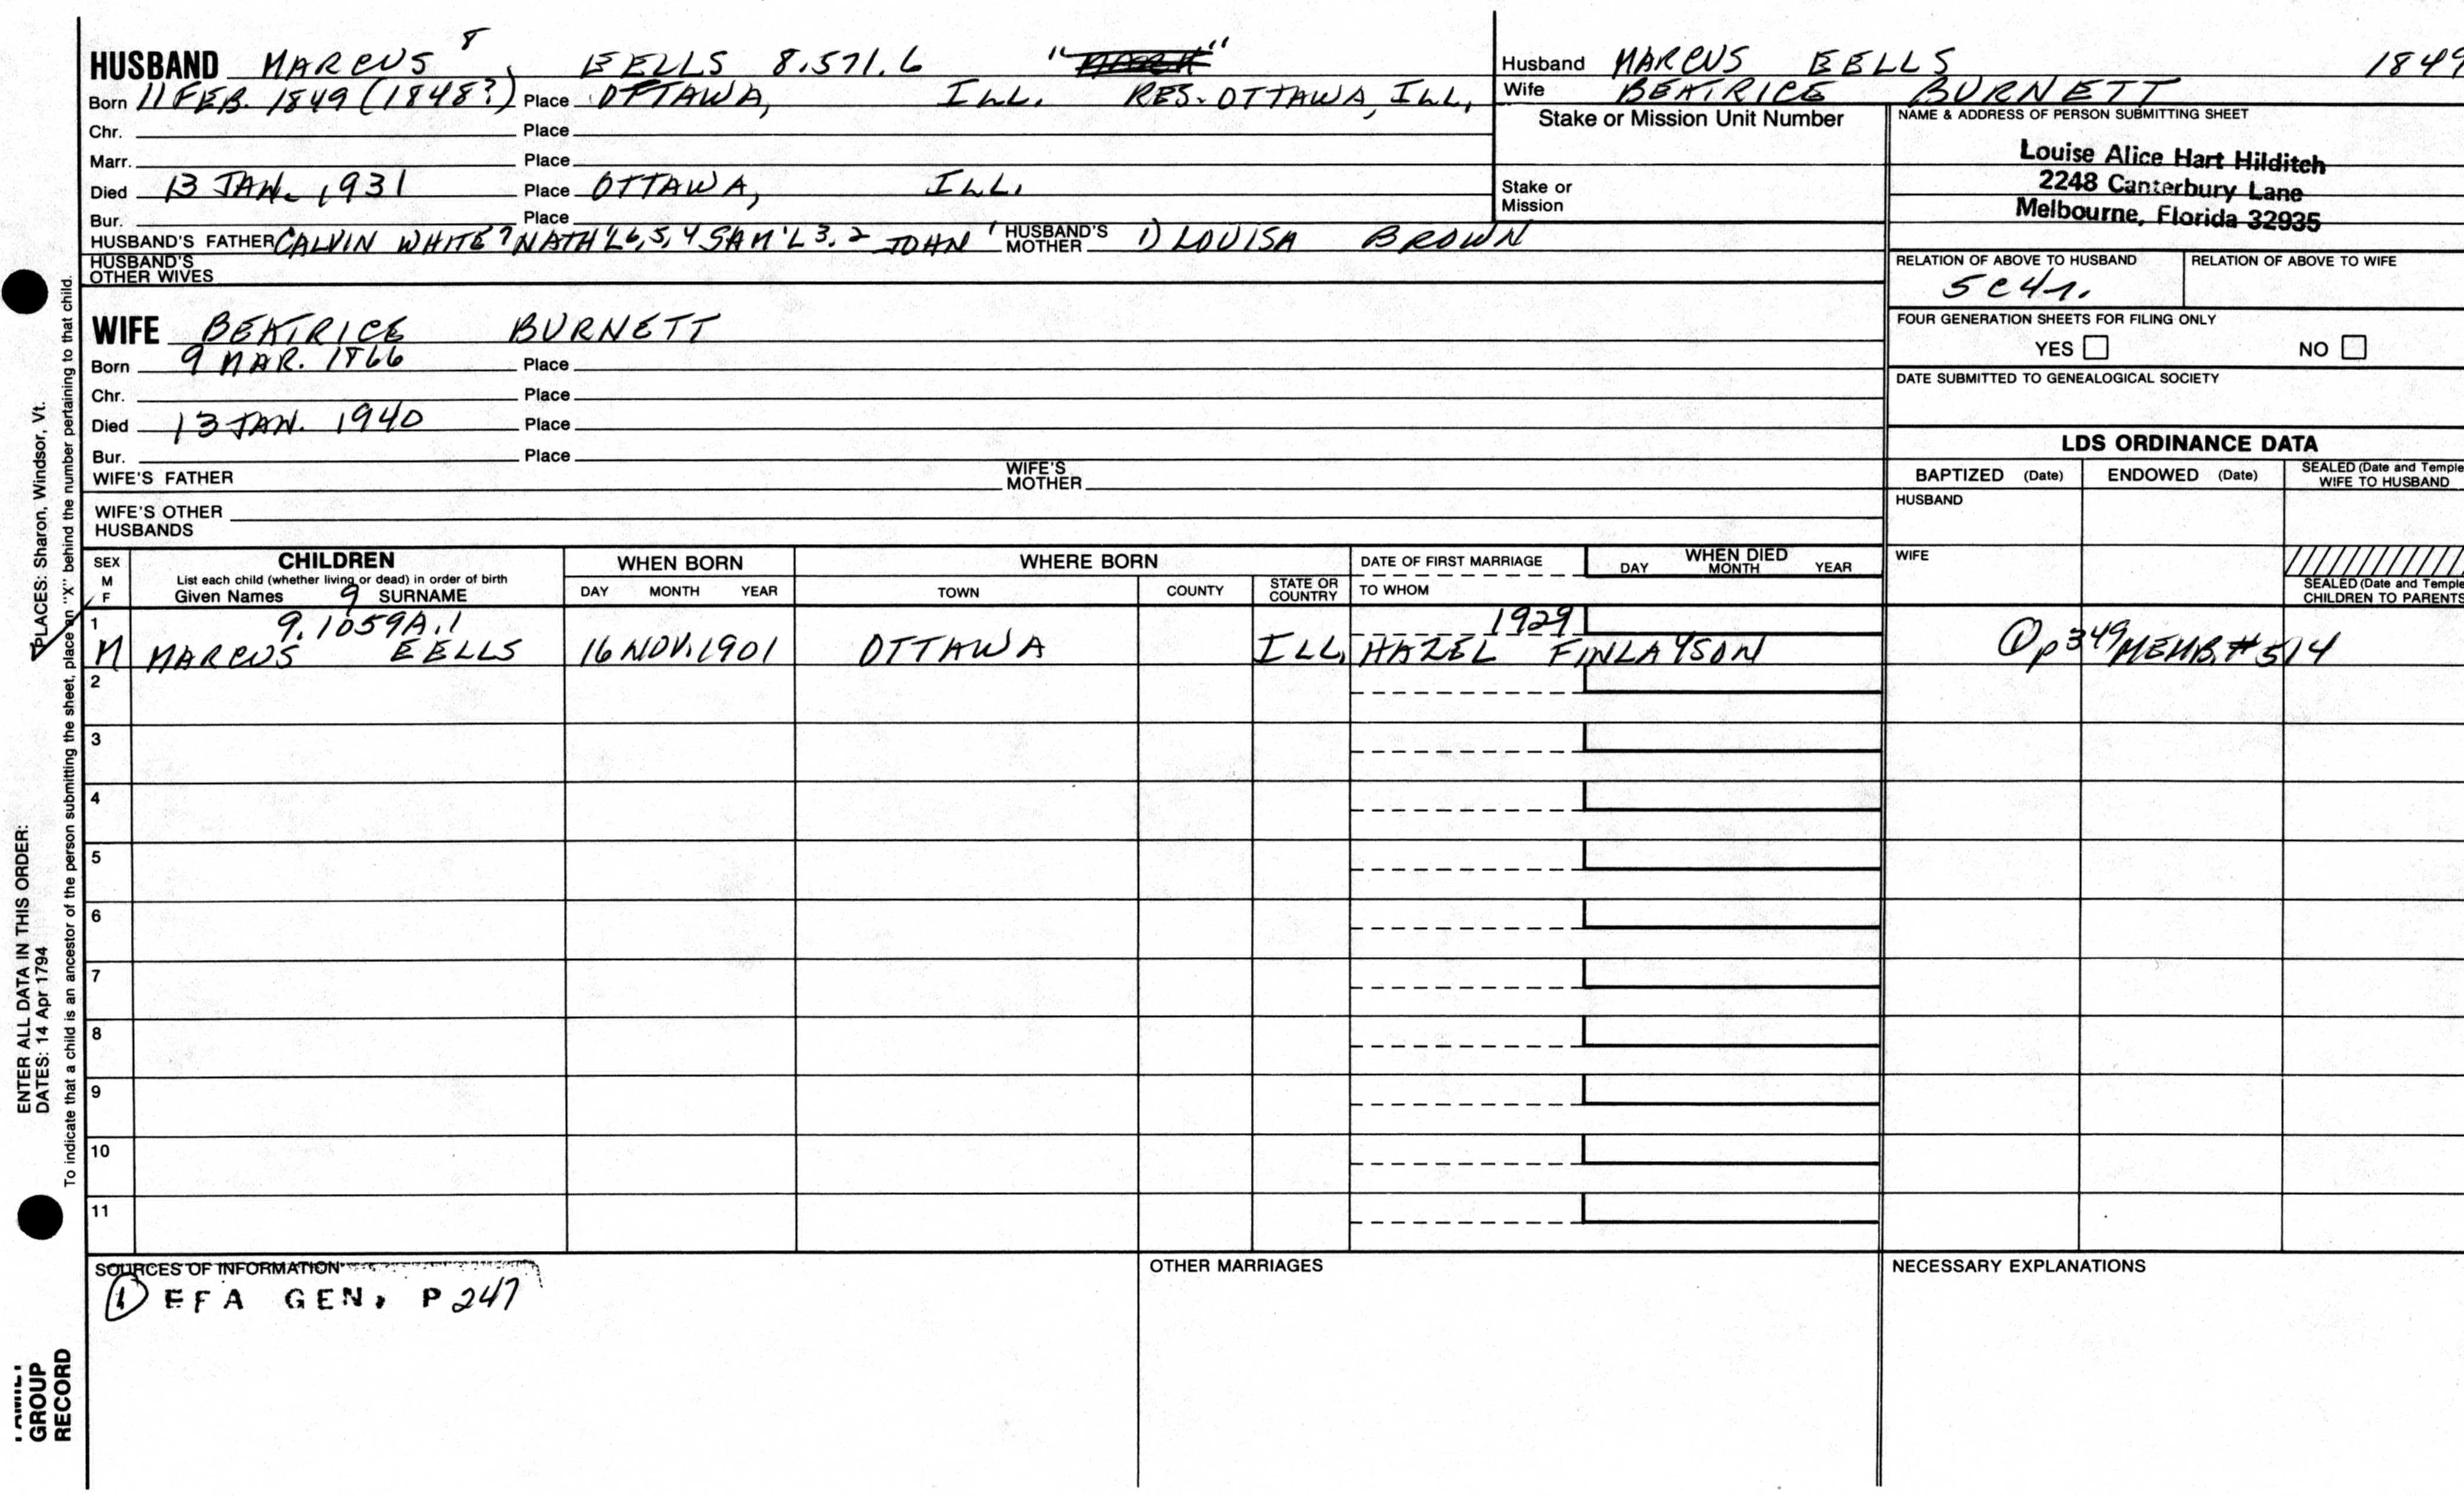 HUSBAND MARCUS 8 EELLS 8.571.6
Born 11 FEB. 1849 (1848?) Place OTTAWA, ILL. RES. OTTAWA, ILL.
Chr. Place
Marr. Place
Died 13 JAN. 1931 Place OTTAWA, ILL.
Bur. Place
HUSBAND'S FATHER CALVIN WHITE 7 NATH'L 6, 5, 4 SAM'L 3, 2 JOHN 1 HUSBAND'S MOTHER 1) LOUISA BROWN
HUSBAND'S OTHER WIVES
WIFE BEATRICE BURNETT
Born 9 MAR. 1866 Place
Chr. Place
Died 13 JAN. 1940 Place
Bur. Place
WIFE'S FATHER WIFE'S MOTHER
WIFE'S OTHER HUSBANDS
Husband MARCUS EELLS 1849
Wife BEATRICE BURNETT
Stake or Mission Unit Number
Stake or Mission
NAME & ADDRESS OF PERSON SUBMITTING SHEET
Louise Alice Hart Hilditch
2248 Canterbury Lane
Melbourne, Florida 32935
RELATION OF ABOVE TO HUSBAND RELATION OF ABOVE TO WIFE
5C4r.
FOUR GENERATION SHEETS FOR FILING ONLY
YES NO
DATE SUBMITTED TO GENEALOGICAL SOCIETY
LDS ORDINANCE DATA
BAPTIZED (Date) ENDOWED (Date) SEALED (Date and Temple
WIFE TO HUSBAND
HUSBAND
WIFE
SEALED (Date and Temple
CHILDREN TO PARENTS
SEX M F CHILDREN WHEN BORN WHERE BORN DATE OF FIRST MARRIAGE WHEN DIED
List each child (whether living or dead) in order of birth
Given Names 9 SURNAME DAY MONTH YEAR TOWN COUNTY STATE OR COUNTRY TO WHOM DAY MONTH YEAR
1 9.1059A.1 1929
M MARCUS EELLS 16 NOV. 1901 OTTAWA ILL. HAZEL FINLAYSON ① p349 MEMB. #514
2
3
4
5
6
7
8
9
10
11
SOURCES OF INFORMATION
① EFA GEN, P 247
OTHER MARRIAGES
NECESSARY EXPLANATIONS
ENTER ALL DATA IN THIS ORDER:
DATES: 14 Apr 1794 PLACES: Sharon, Windsor, Vt.
To indicate that a child is an ancestor of the person submitting the sheet, place an "X" behind the number pertaining to that child.
GROUP
RECORD